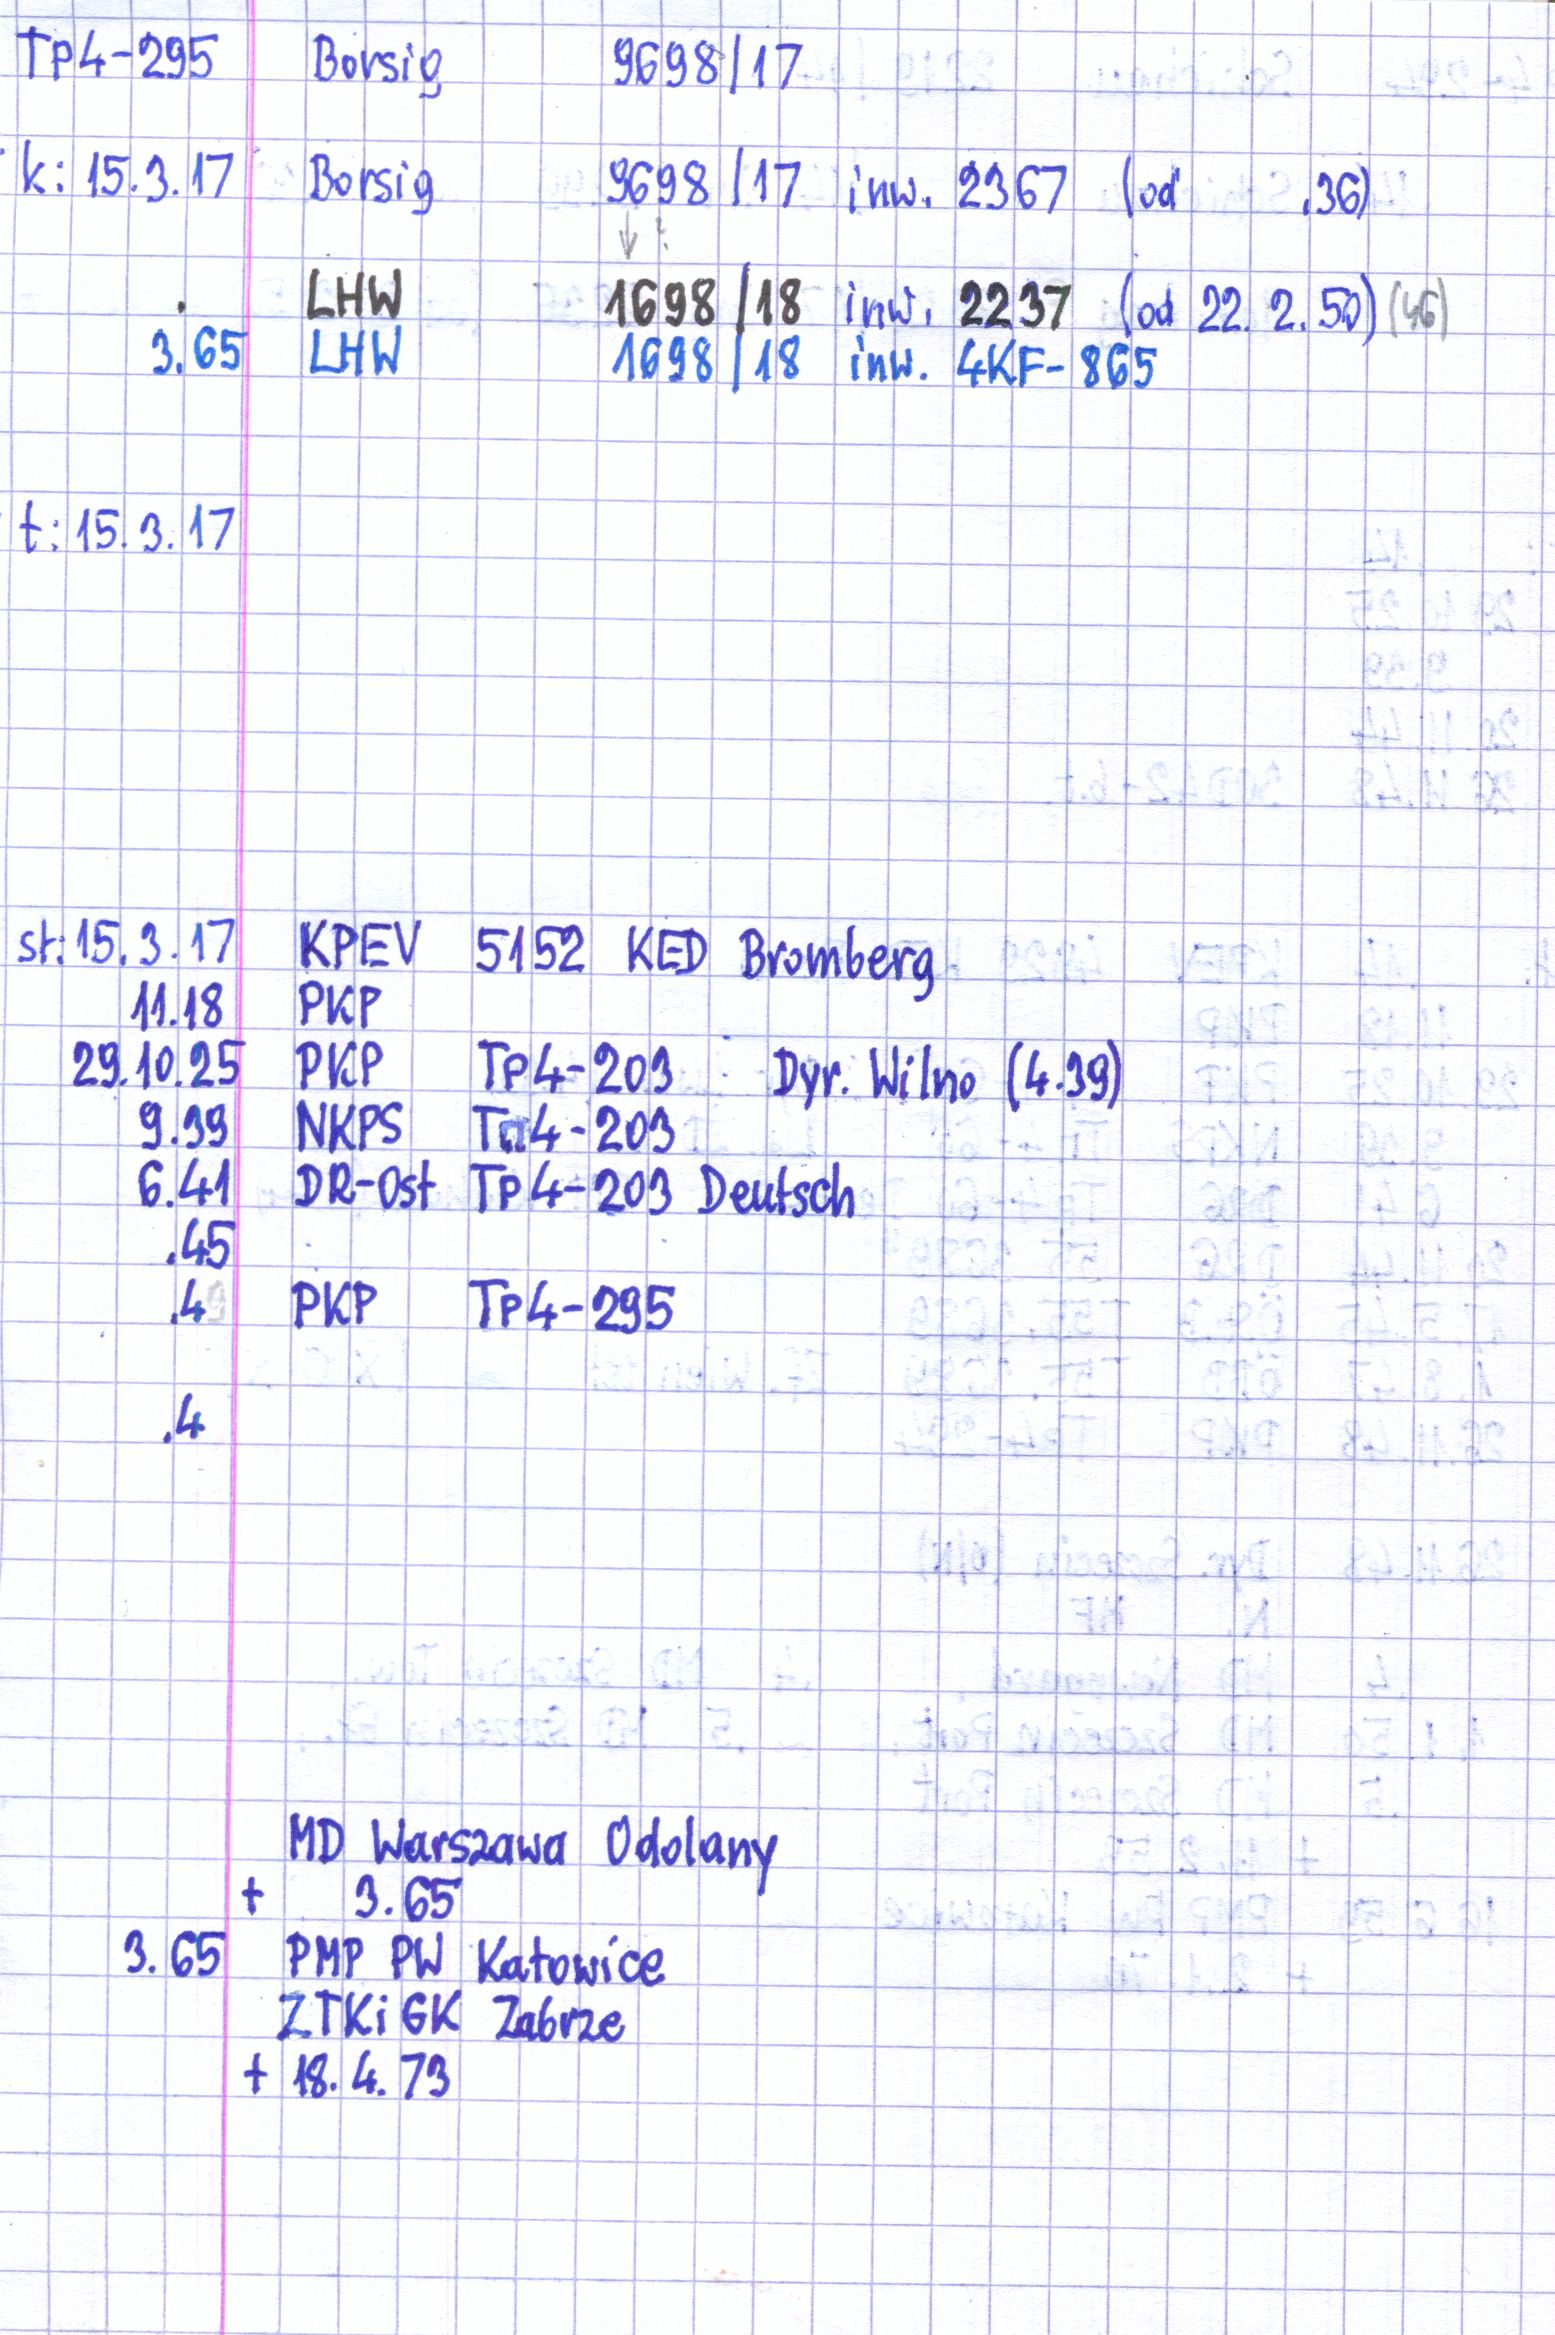 Tp4-295 Borsig 9698/17
k: 15.3.17 Borsig 9698/17 inw. 2367 (od .36)
↓ ?
. LHW 1698/18 inw. 2237 (od 22.2.50) (46)
3.65 LHW 1698/18 inw. 4KF-865
t: 15.3.17
st: 15.3.17 KPEV 5152 KED Bromberg
11.18 PKP
29.10.25 PKP Tp4-203 Dyr. Wilno (4.39)
9.39 NKPS Tп4-203
6.41 DR-Ost Tp4-203 Deutsch
.45
.49 PKP Tp4-295
.4
MD Warszawa Odolany
+ 3.65
3.65 PMP PW Katowice
ZTKiGK Zabrze
+ 18.4.73